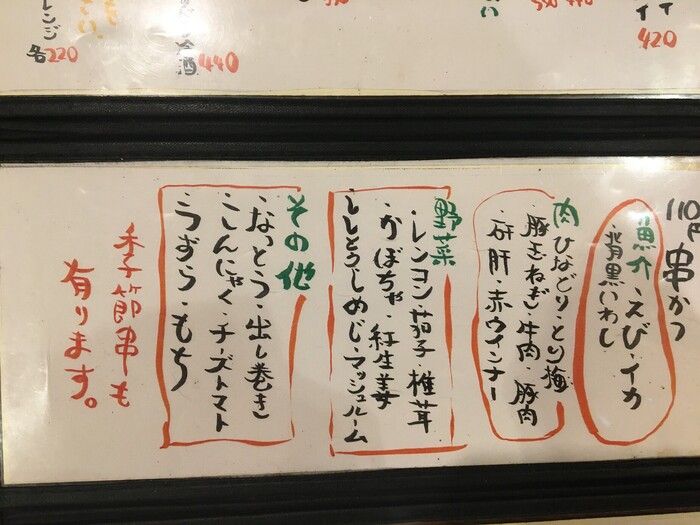 イ
420
440
各220
レンジ
110円 串かつ
魚介・えび・イカ
・背黒いわし
肉 ひなどり・とり梅
・豚玉ねぎ・牛肉・豚肉
・砂肝・赤ウインナー
野菜
・レンコン・茄子・椎茸
・かぼちゃ・紅生姜
・ししとう・しめじ・マッシュルーム
その他
・なっとう・出し巻き
・こんにゃく・チーズトマト
・うずら・もち
季節串も
有ります。